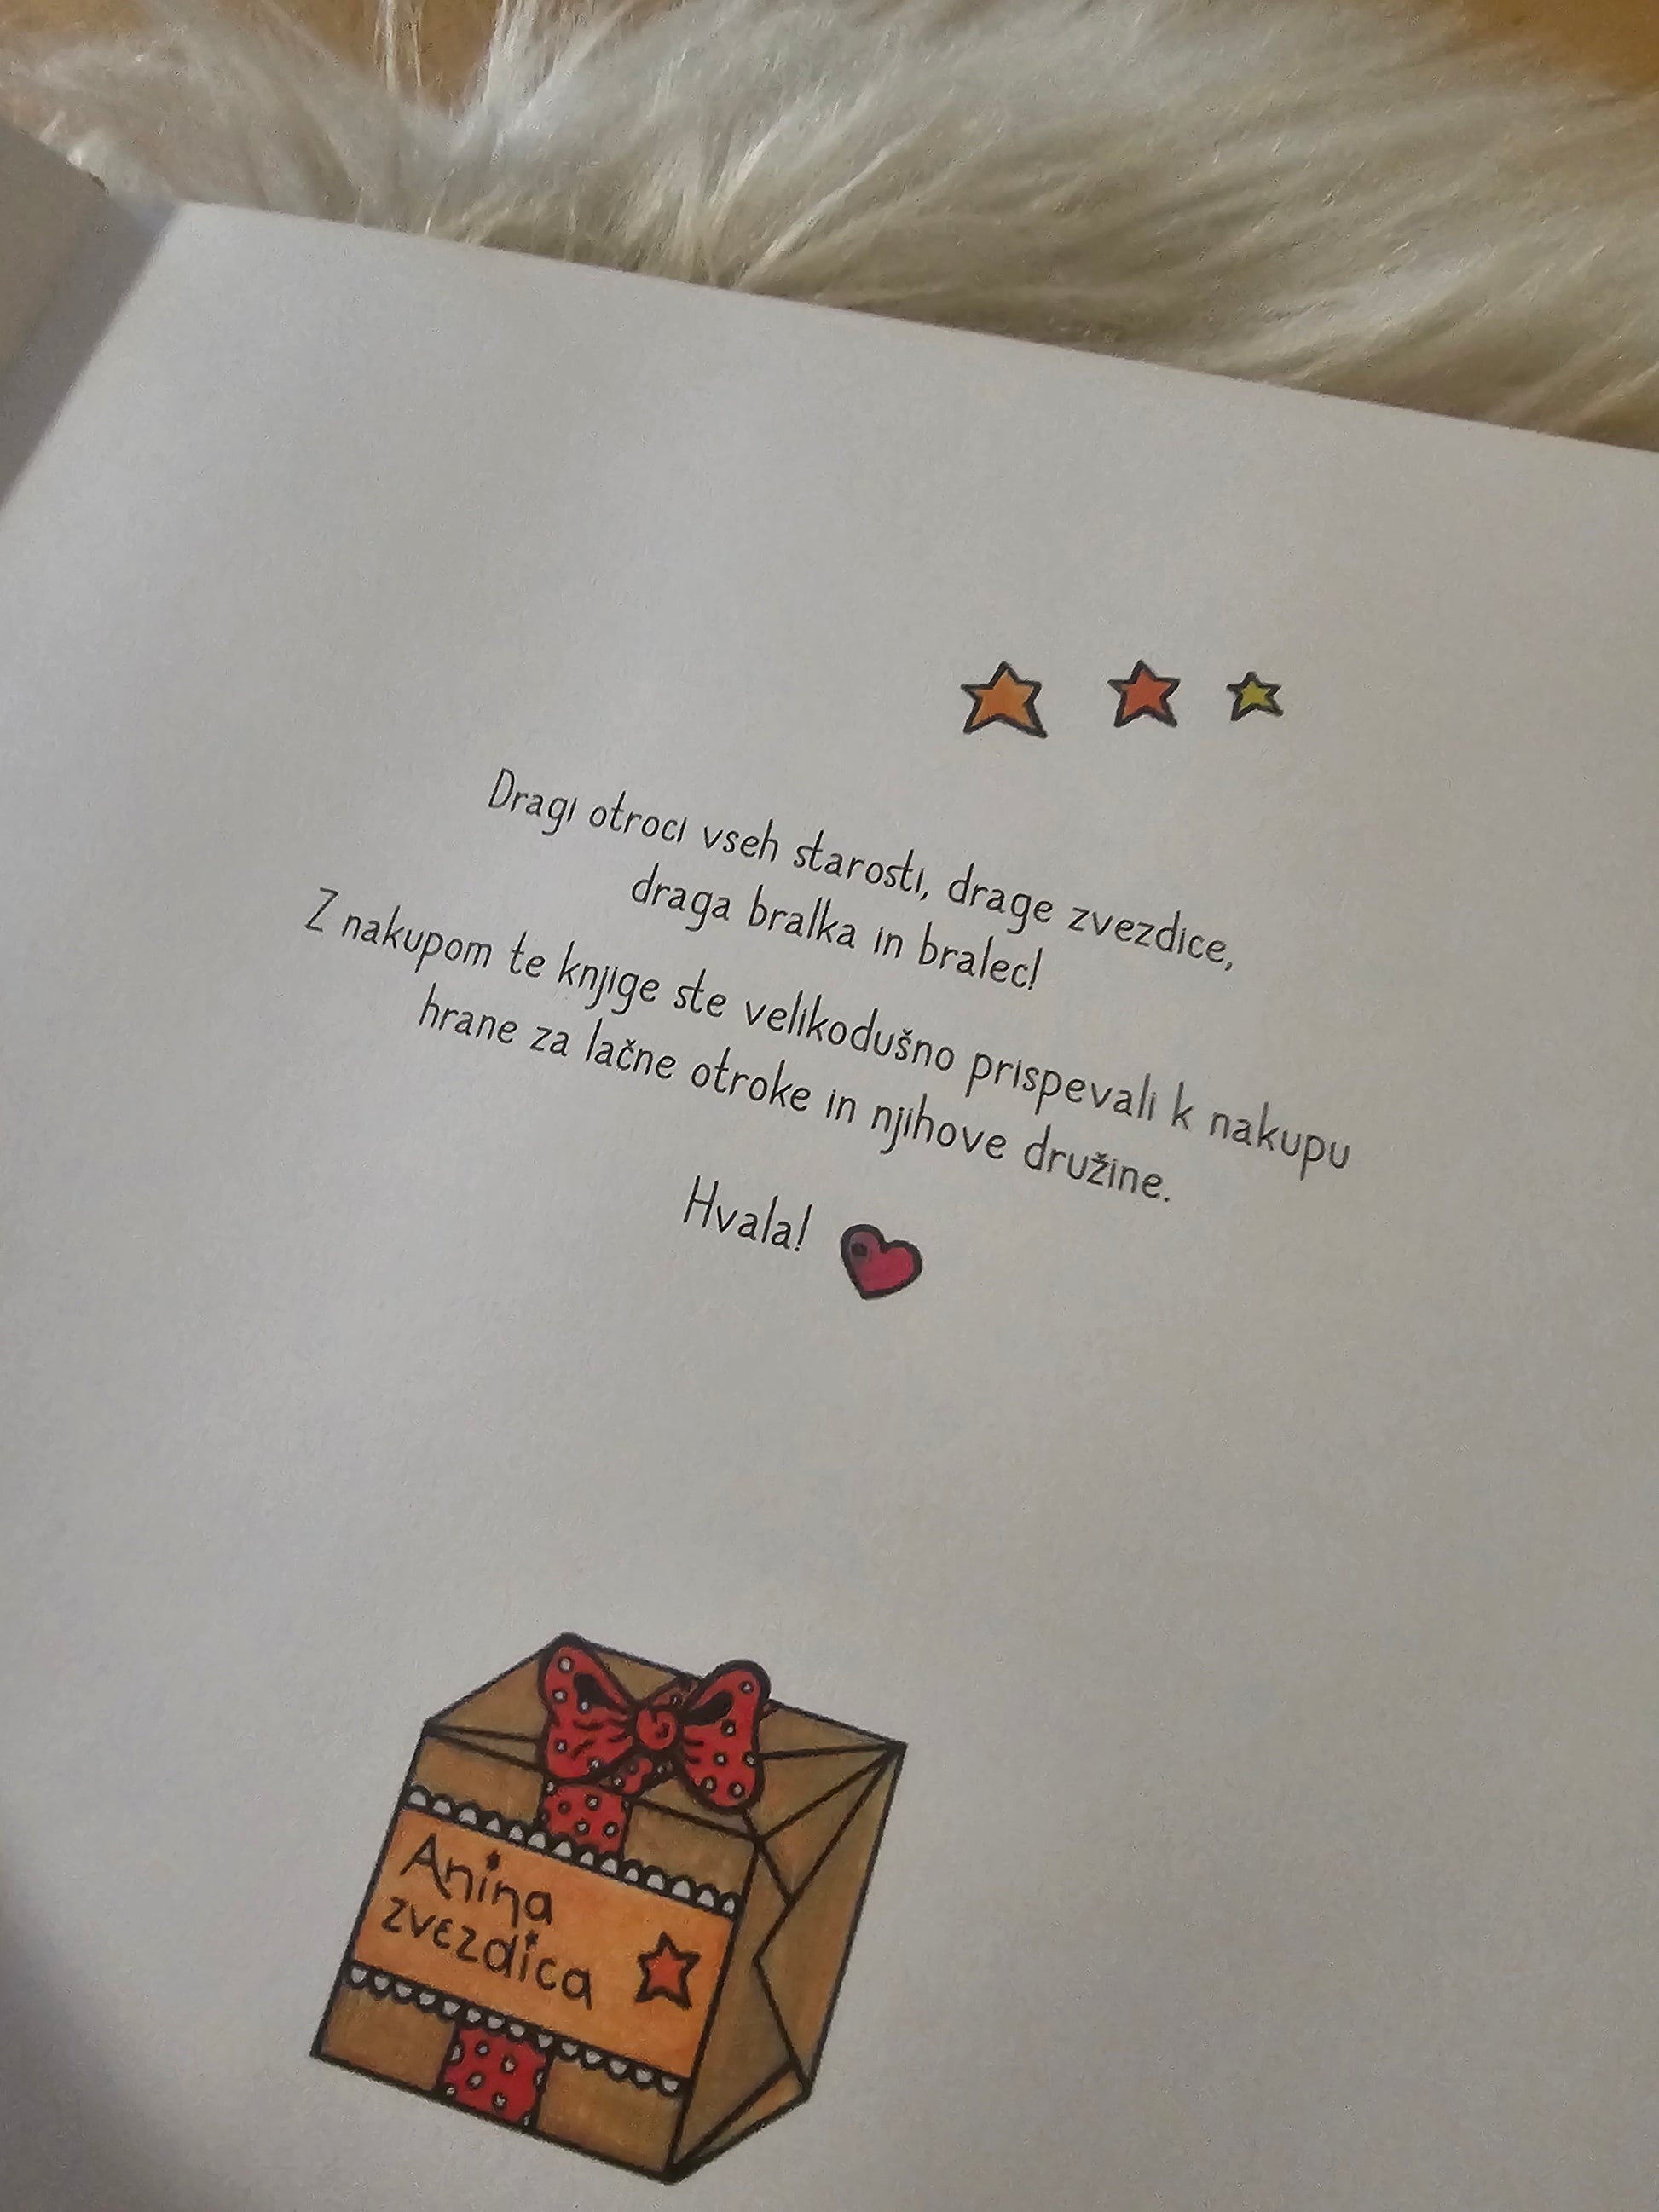 Dragi otroci vseh starosti, drage zvezdice,
draga bralka in bralec!
Z nakupom te knjige ste velikodušno prispevali k nakupu
hrane za lačne otroke in njihove družine.
Hvala!
Anina
zvezdica